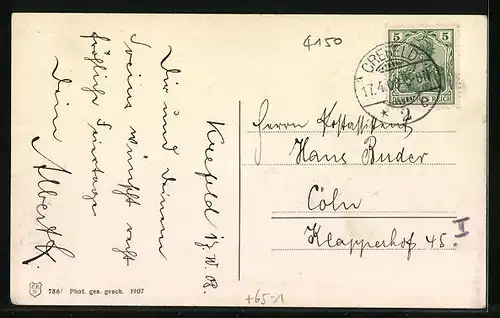 4150
5 5
CREFELD
17.4.08
DEUTSCHES REICH
* 2 c
Krefeld 17.IV.08.
Dir und Deinem
Verein wünscht recht
fröhliche Feiertage
Dein Albert
Herrn Postassistent
Hans Buder
Cöln
Klapperhof 45.
I
786/ Phot. ges. gesch. 1907
+65-1